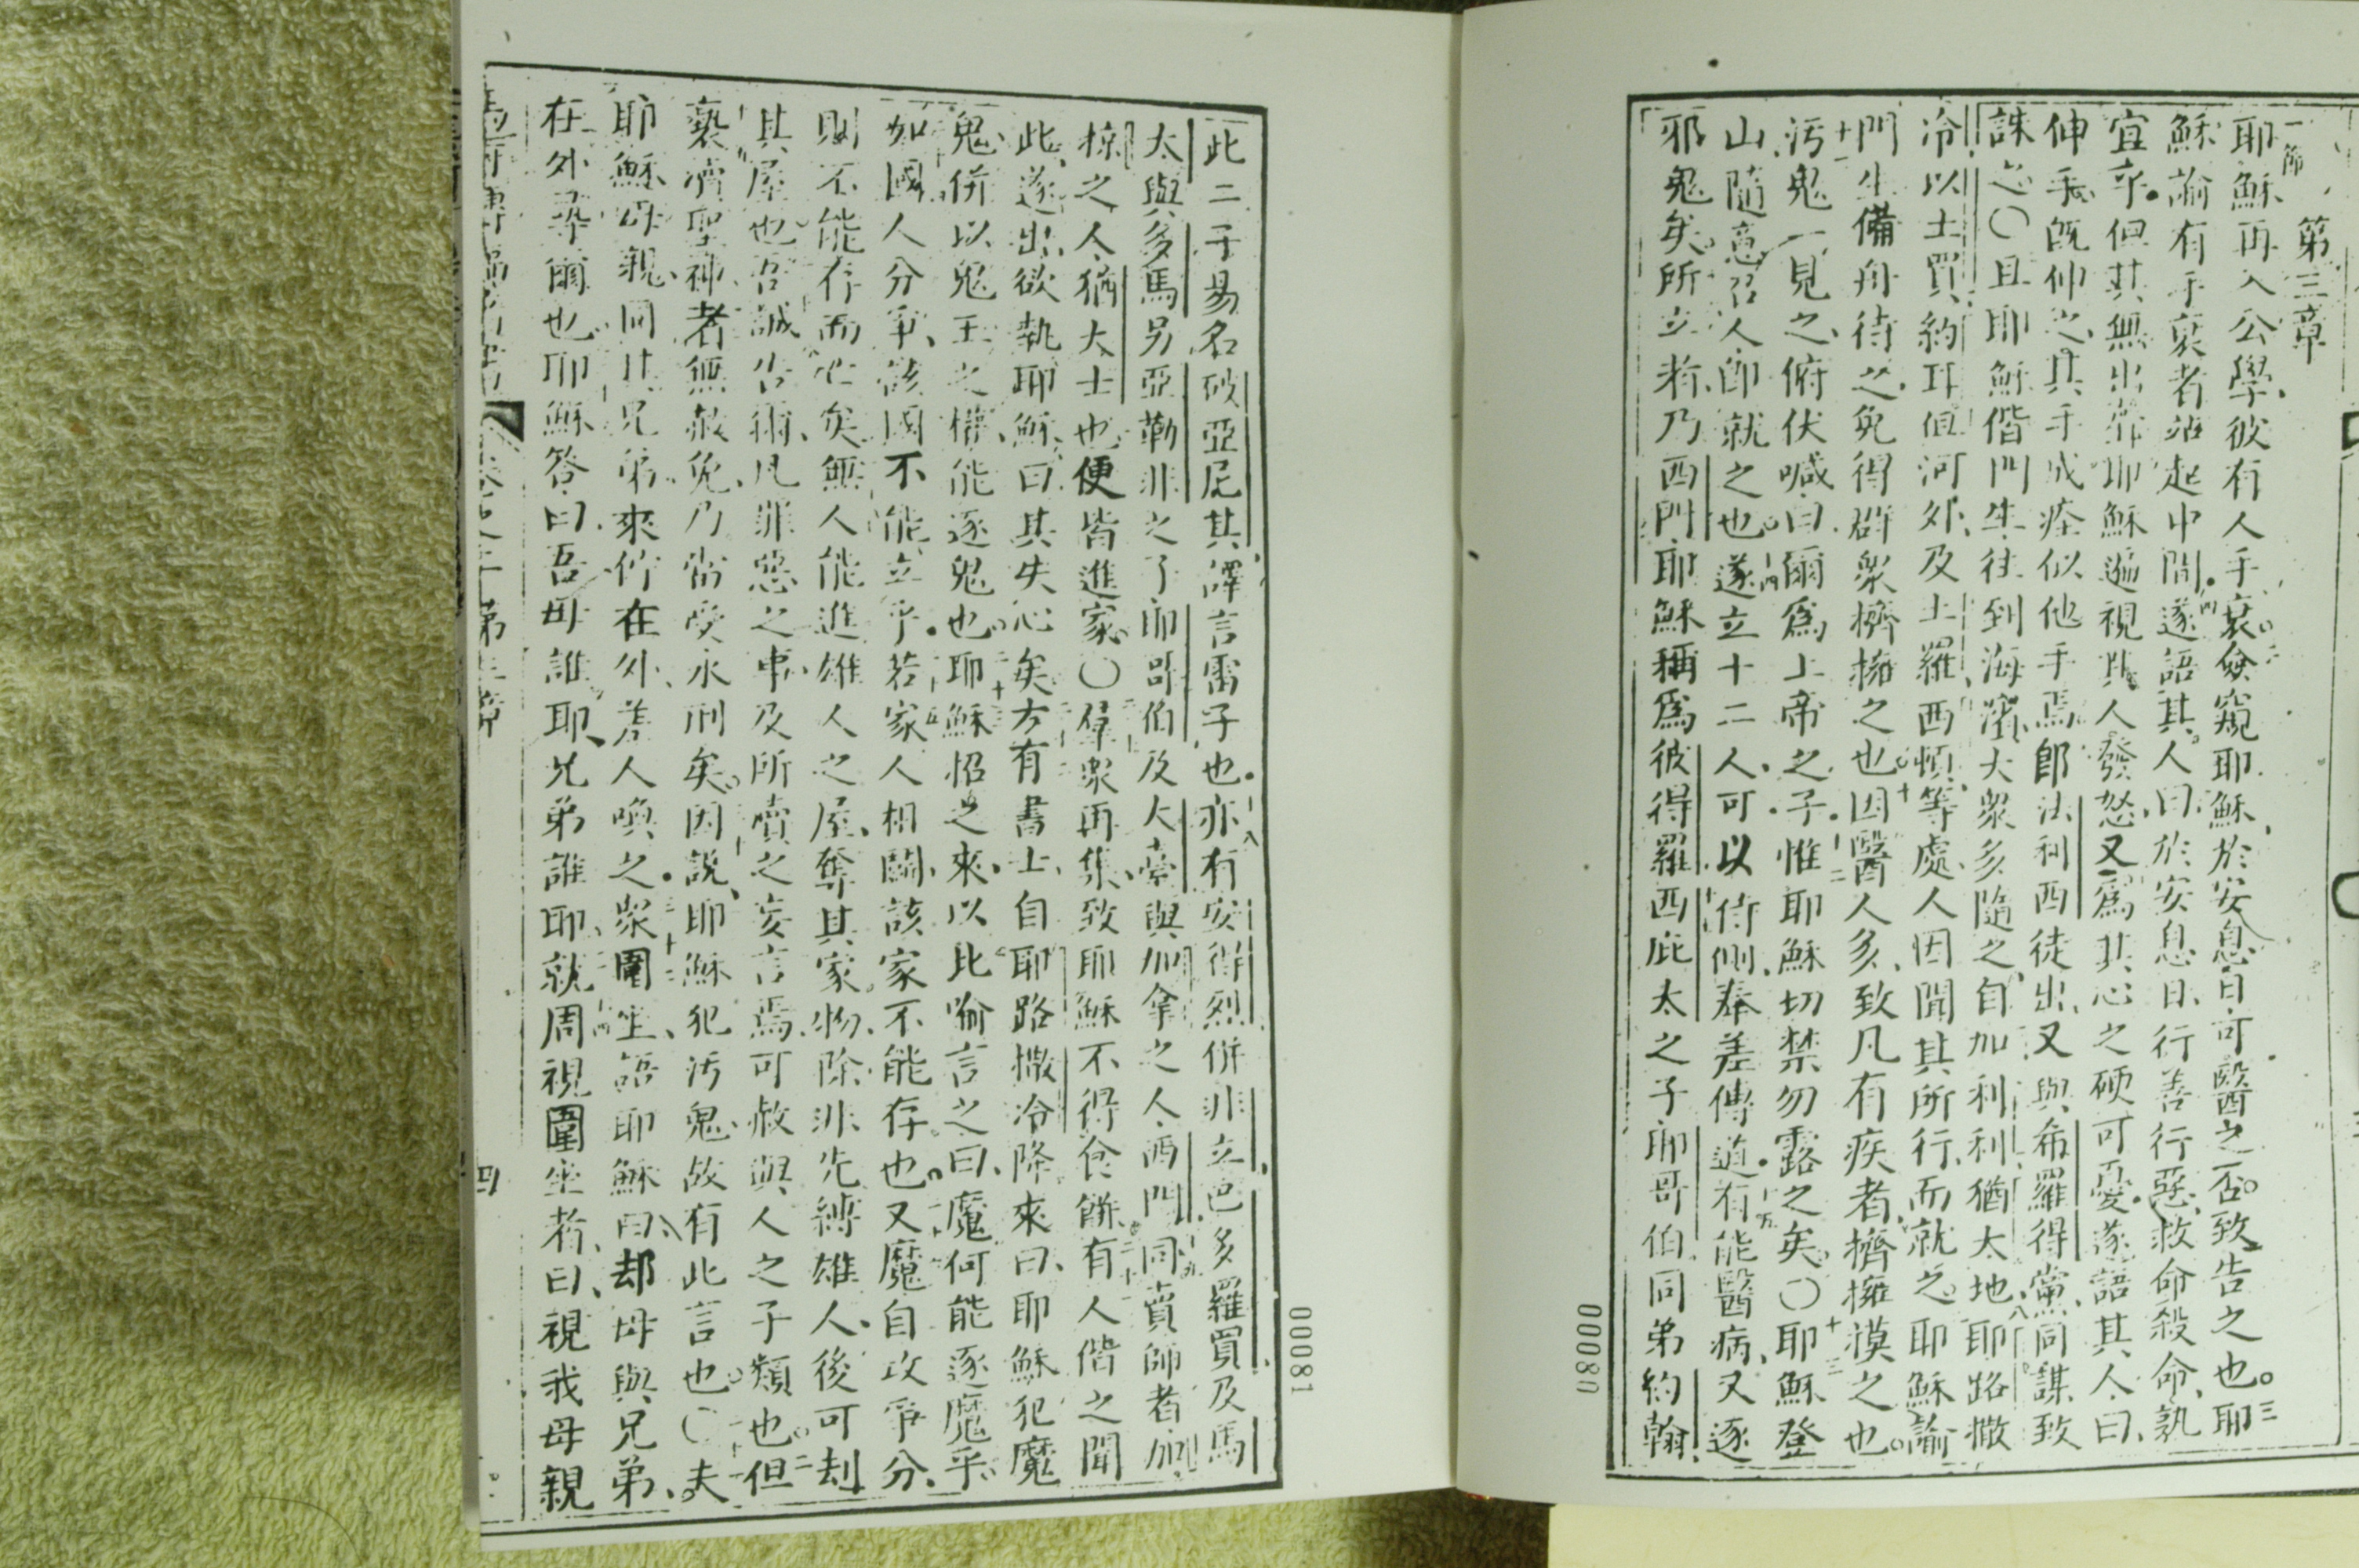 第三章
一節
耶穌再入公學彼有人手衰僉窺耶穌於安息日可醫之否致告之也耶
穌諭有手衰者站起中間遂語其人曰於安息日行善行惡救命殺命孰
宜乎但其無出聲耶穌遍視其人發怒又為其心之硬可憂遂語其人曰
伸手既伸之其手成痊似他手焉即法利西徒出又與希羅得黨同謀致
誅之〇且耶穌偕門生往到海濱大眾多隨之自加利利猶大地耶路撒
冷以土買約耳但河外及土羅西頓等處人因聞其所行而就之耶穌諭
門生備舟待之免得群眾擠擁之也因醫人多致凡有疾者擠擁摸之也
污鬼一見之俯伏喊曰爾為上帝之子惟耶穌切禁勿露之矣〇耶穌登
山隨意召人即就之也遂立十二人可以侍側奉差傳道有能醫病又逐
邪鬼矣所立者乃西門耶穌稱為彼得羅西庇太之子耶哥伯同弟約翰
00080
此二子易名破亞尼其譯言雷子也亦有安得烈併非立巴多羅買及馬
太與多馬另亞勒非之子耶哥伯及大臺與加拿之人西門同賣師者加
掠之人猶大士也便皆進家〇羣眾再集致耶穌不得食餅有人偕之聞
此遂出欲執耶穌曰其失心矣方有書士自耶路撒冷降來曰耶穌犯魔
鬼併以鬼王之權能逐鬼也耶穌招之來以比喻言之曰魔何能逐魔乎
如國人分爭該國不能立乎若家人相鬪該家不能存也又魔自攻爭分
則不能存而亡矣無人能進雄人之屋奪其家物除非先縛雄人後可刦
其屋也吾誠告爾凡罪惡之事及所瀆之妄言焉可赦與人之子類也但
褻瀆聖神者無赦免乃當受永刑矣因說耶穌犯污鬼故有此言也〇夫
耶穌母親同其兄弟來竚在外差人喚之眾圍坐語耶穌曰却母與兄弟
在外尋爾也耶穌答曰吾母誰耶兄弟誰耶就周視圍坐者曰視我母親
第三章
四
00081